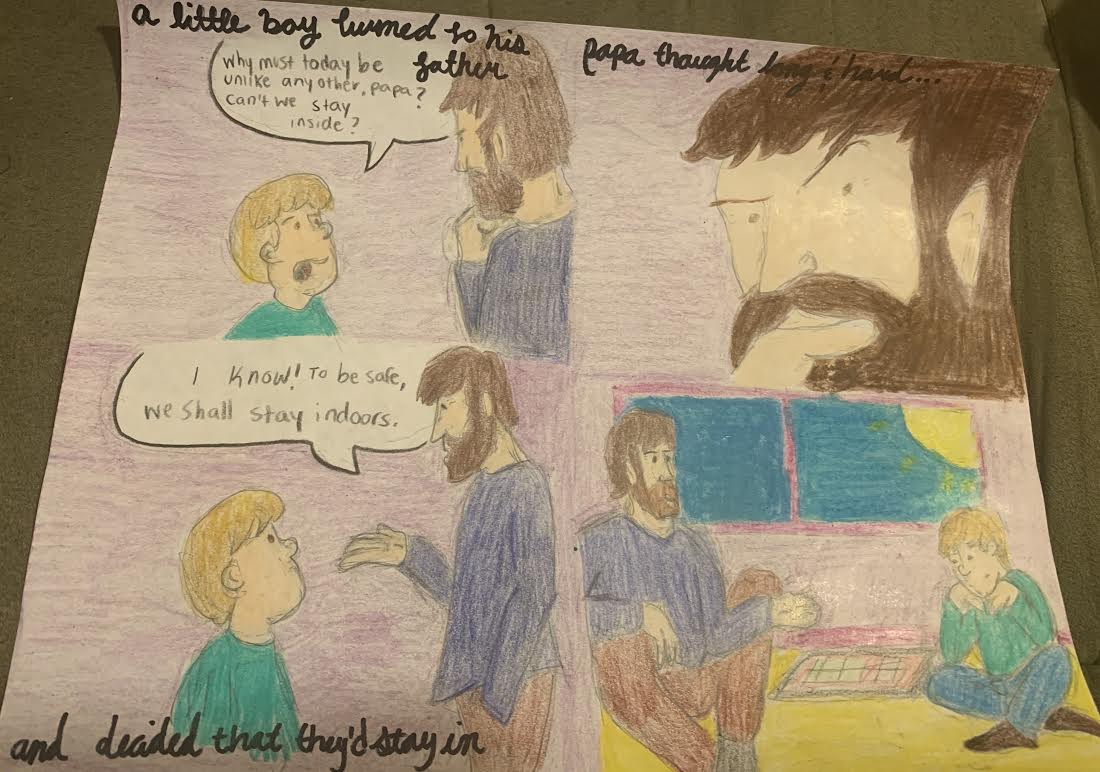 a little boy turned to his
father
why must today be
unlike any other, papa?
can't we stay
inside?
papa thought long & hard...
I know! To be safe,
we shall stay indoors.
and decided that they'd stay in